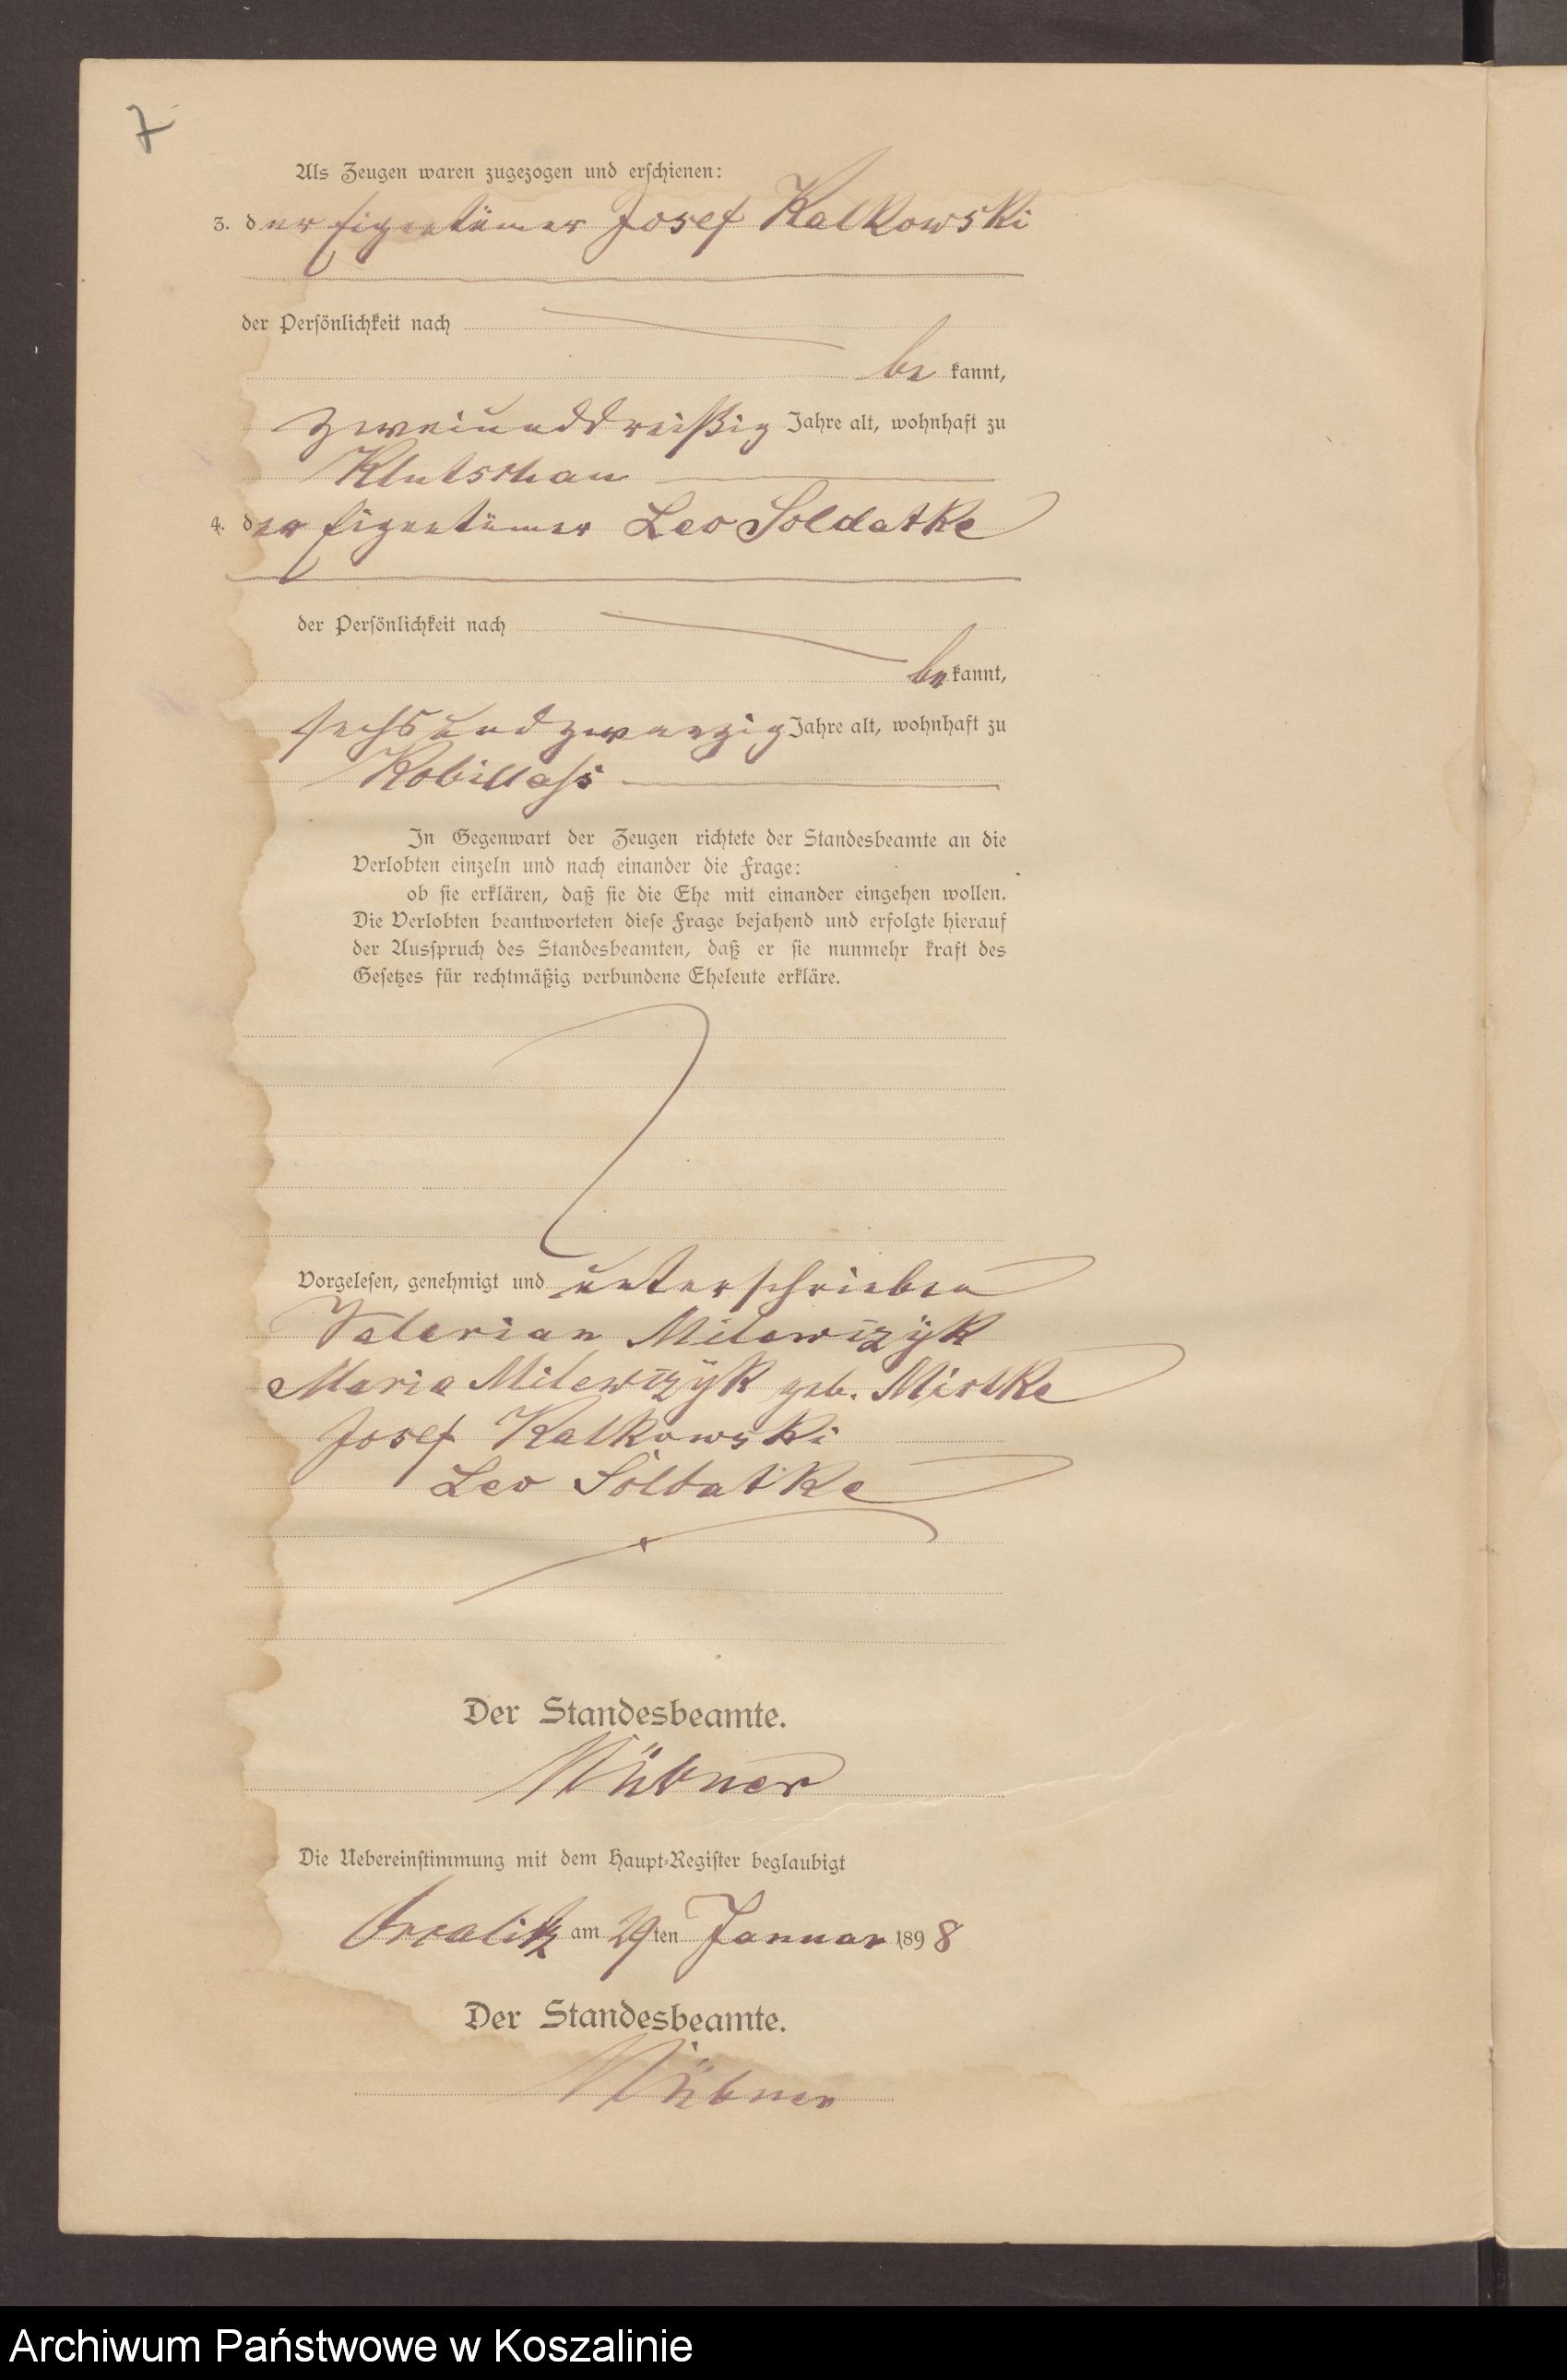 7
Als Zeugen waren zugezogen und erschienen:
3. der Eigentümer Josef Kalkowski
der Persönlichkeit nach
be kannt,
zweiunddreißig Jahre alt, wohnhaft zu
Klutschau
4. der Eigentümer Leo Soldatke
der Persönlichkeit nach
be kannt,
sechsundzwanzig Jahre alt, wohnhaft zu
Kobillass
In Gegenwart der Zeugen richtete der Standesbeamte an die
Verlobten einzeln und nach einander die Frage:
ob sie erklären, daß sie die Ehe mit einander eingehen wollen.
Die Verlobten beantworteten diese Frage bejahend und erfolgte hierauf
der Ausspruch des Standesbeamten, daß er sie nunmehr kraft des
Gesetzes für rechtmäßig verbundene Eheleute erkläre.
Vorgelesen, genehmigt und unterschrieben
Valerian Milewczyk
Maria Milewczyk geb. Mielke
Josef Kalkowski
Leo Soldatke
Der Standesbeamte.
Hübner
Die Uebereinstimmung mit dem Haupt-Register beglaubigt
am 29ten Januar 1898
Der Standesbeamte.
Hübner
Archiwum Państwowe w Koszalinie